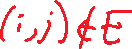 (i,j)∉E